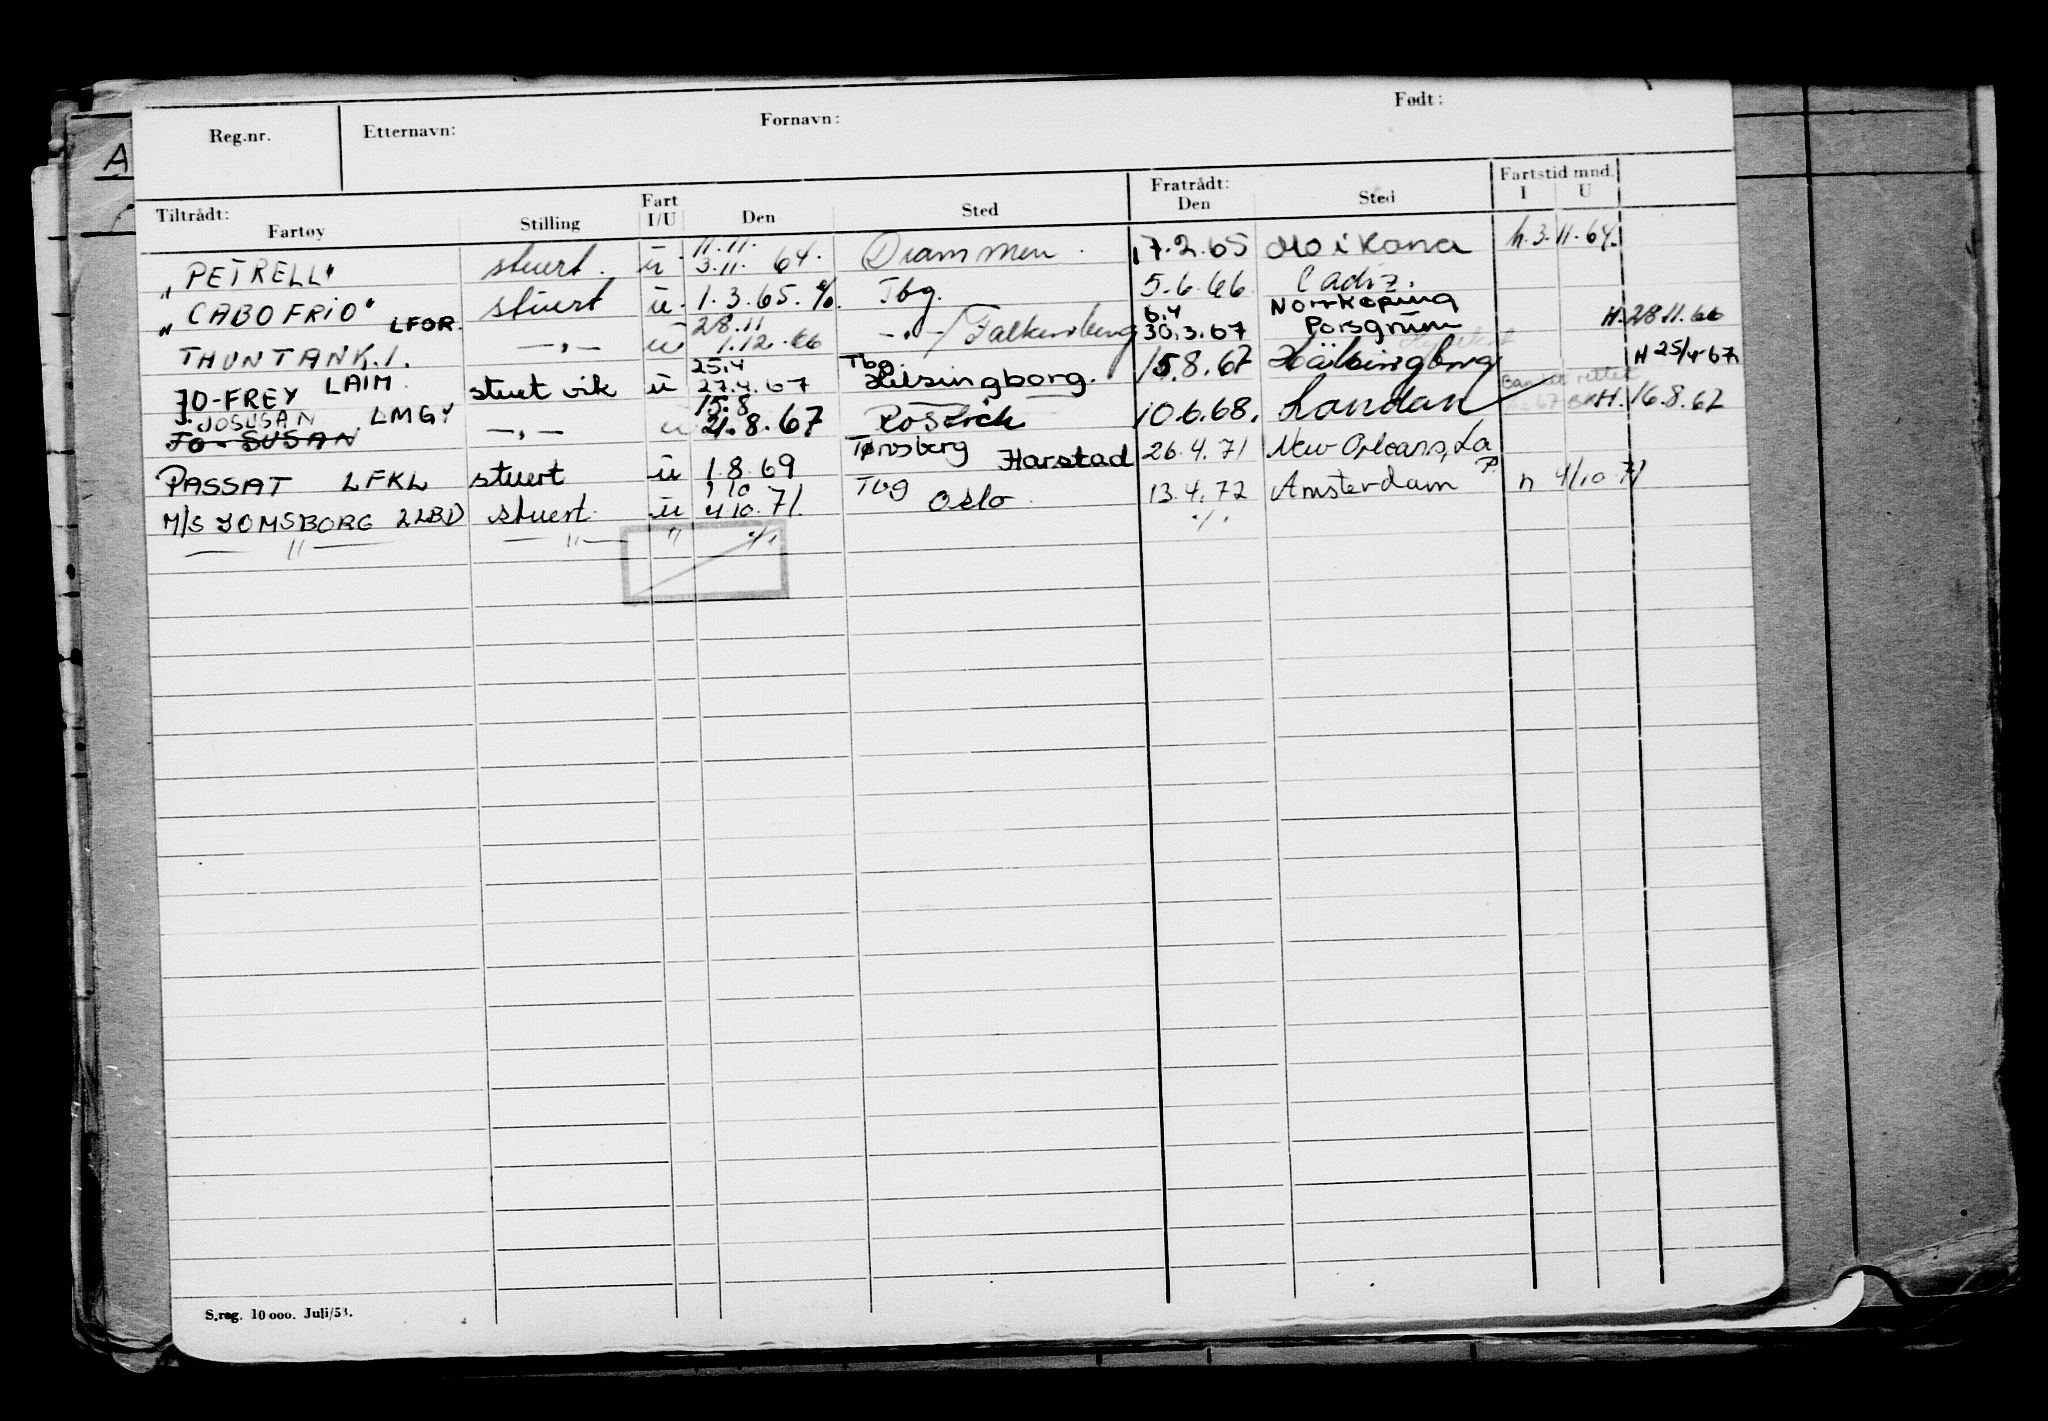 A
Reg.nr. Etternavn: Fornavn: Født:
Tiltrådt: Fratrådt: Fartstid mnd.
Fartøy Stilling Fart I/U Den Sted Den Sted I U
11.11.
„PETRELL" stuert. u 3.11. 64. Drammen. 17.2.65 Mo i Rana h. 3.11.64.
„CABO FRIO" stuert u. 1.3.65. %. Tbg. 5.6.66 Cadiz.
LFOR. 28.11 6.4 Norrkøping
THUNTANK.1. —„— u 1.12.66 —„—/Falkenberg 30.3.67 Porsgrunn H. 28.11.66
25.4 Tbg.
JO-FREY LAIM. stuert vik u 27.4.67 Helsingborg. 15.8.67 Hälsingborg H 25/4-67
JOSUSAN 15.8
JO-SUSAN LMGY —„— u 21.8.67 Rostock 10.6.68. London H. 16.8.67
PASSAT LFKL stuert u 1.8.69 Tønsberg Harstad 26.4.71 New Orleans, La
1.10
M/S JOMSBORG LLBD stuert. u 4.10.71. Tbg Oslo 13.4.72 Amsterdam n 4/10 71
— " — — " — " ./. ./.
S.reg. 10 000. Juli/53.